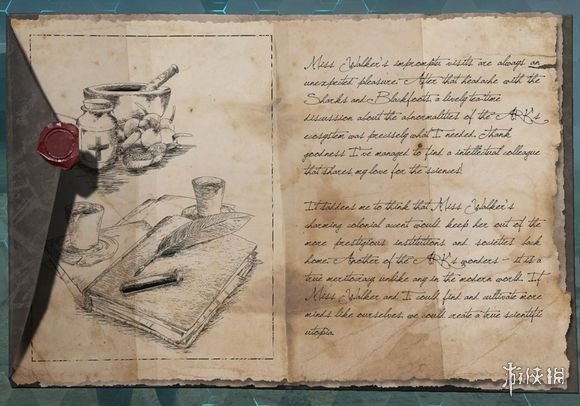 Miss Walker's impromptu visits are always an
unexpected pleasure. After that headache with the
Sharks and Blackfoots, a lively tea-time
disussion about the abnormalities of the ARKs
ecosystem was precisely what I needed. Thank
goodness I've managed to find a intellectual colleague
that shares my love for the sciences!
It saddens me to think that Miss Walker's
charming colonial accent would keep her out of the
more prestigious institutions and societies back
home. Another of the ARKs wonders - it is a
true meritocracy unlike any in the modern world. If
Miss Walker and I could find and cultivate more
minds like ourselves, we could create a true scientific
utopia.
游侠网